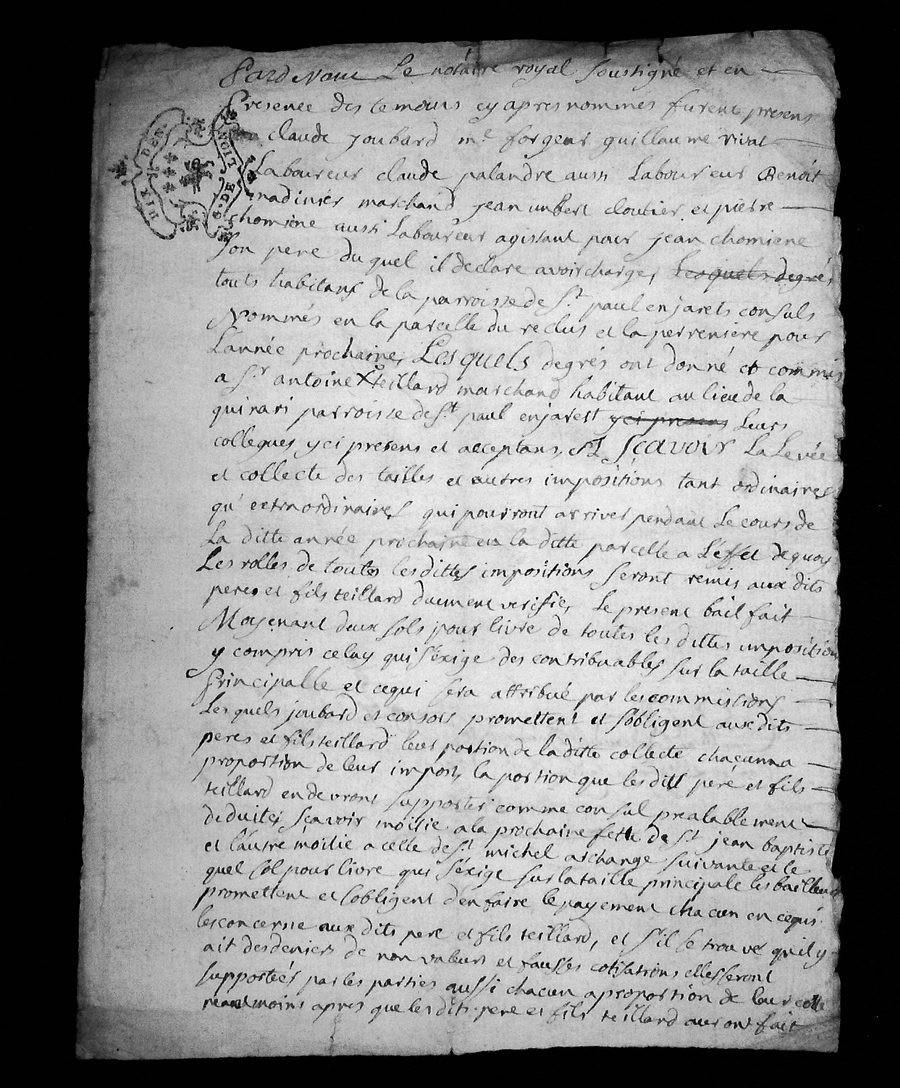 Pardevant Le notaire royal soussigné et en
Presence des temoins cy apres nommes furent presens
claude Joubard me forgeur guillaume vivat
Laboureur claude palandre aussi Laboureur Benoit
madinier marchand jean imbert cloutier et pierre
chomiene aussi Laboureur agissant pour jean chomiene
son pere duquel il declare avoir charge, Lesquels degrés
touts habitans de la parroisse de St paul en jarets consuls
Nommés en la parcelle du reclus et la perreniere pour
L'année prochaine, Lesquels degrés ont donné et commis
a Sr antoine teillard marchand habitant au lieu de la
quinari parroisse de St paul en jarest yci presens Leurs
collegues yci presens et acceptans, Sçavoir La Levée
et collecte des tailles et autres impositions tant ordinaires
qu'extraordinaires qui pourront arriver pendant Le cours de
La ditte année prochaine en la ditte parcelle a L'effet de quoy
Les rolles de touttes les dittes impositions seront remis aux dits
peres et fils teillard duement verifies, Le present bail fait
Moyenant deux sols pour livre de toutes les dittes imposition
y compris celuy qui s'exige des contribuables sur la taille
Principalle et cequi sera attribué par les commissions
Lesquels joubard et consors promettent et s'obligent aux dits
peres et fils teillard leur portion de la ditte collecte chacun a
proportion de leur impost, la portion que les dits pere et fils
teillard en devront supporter comme consul prealablement
deduite, sçavoir moitié a la prochaine fette de St jean baptiste
et L'autre moitié a celle de St michel archange suivante et le
quel sol pour livre qui s'exige sur la taille principale les bailleurs
promettent et s'obligent d'en faire le payement chacun en cequi
les concerne aux dits pere et fils teillard, et s'il se trouve qu'il y
ait des deniers de non valeurs et fausses cotisations elles seront
supportées par les parties aussi chacun a proportion de leur cotte
neantmoins apres que les dits pere et fils teillard auront fait
DIX DEN.
G. DE LION